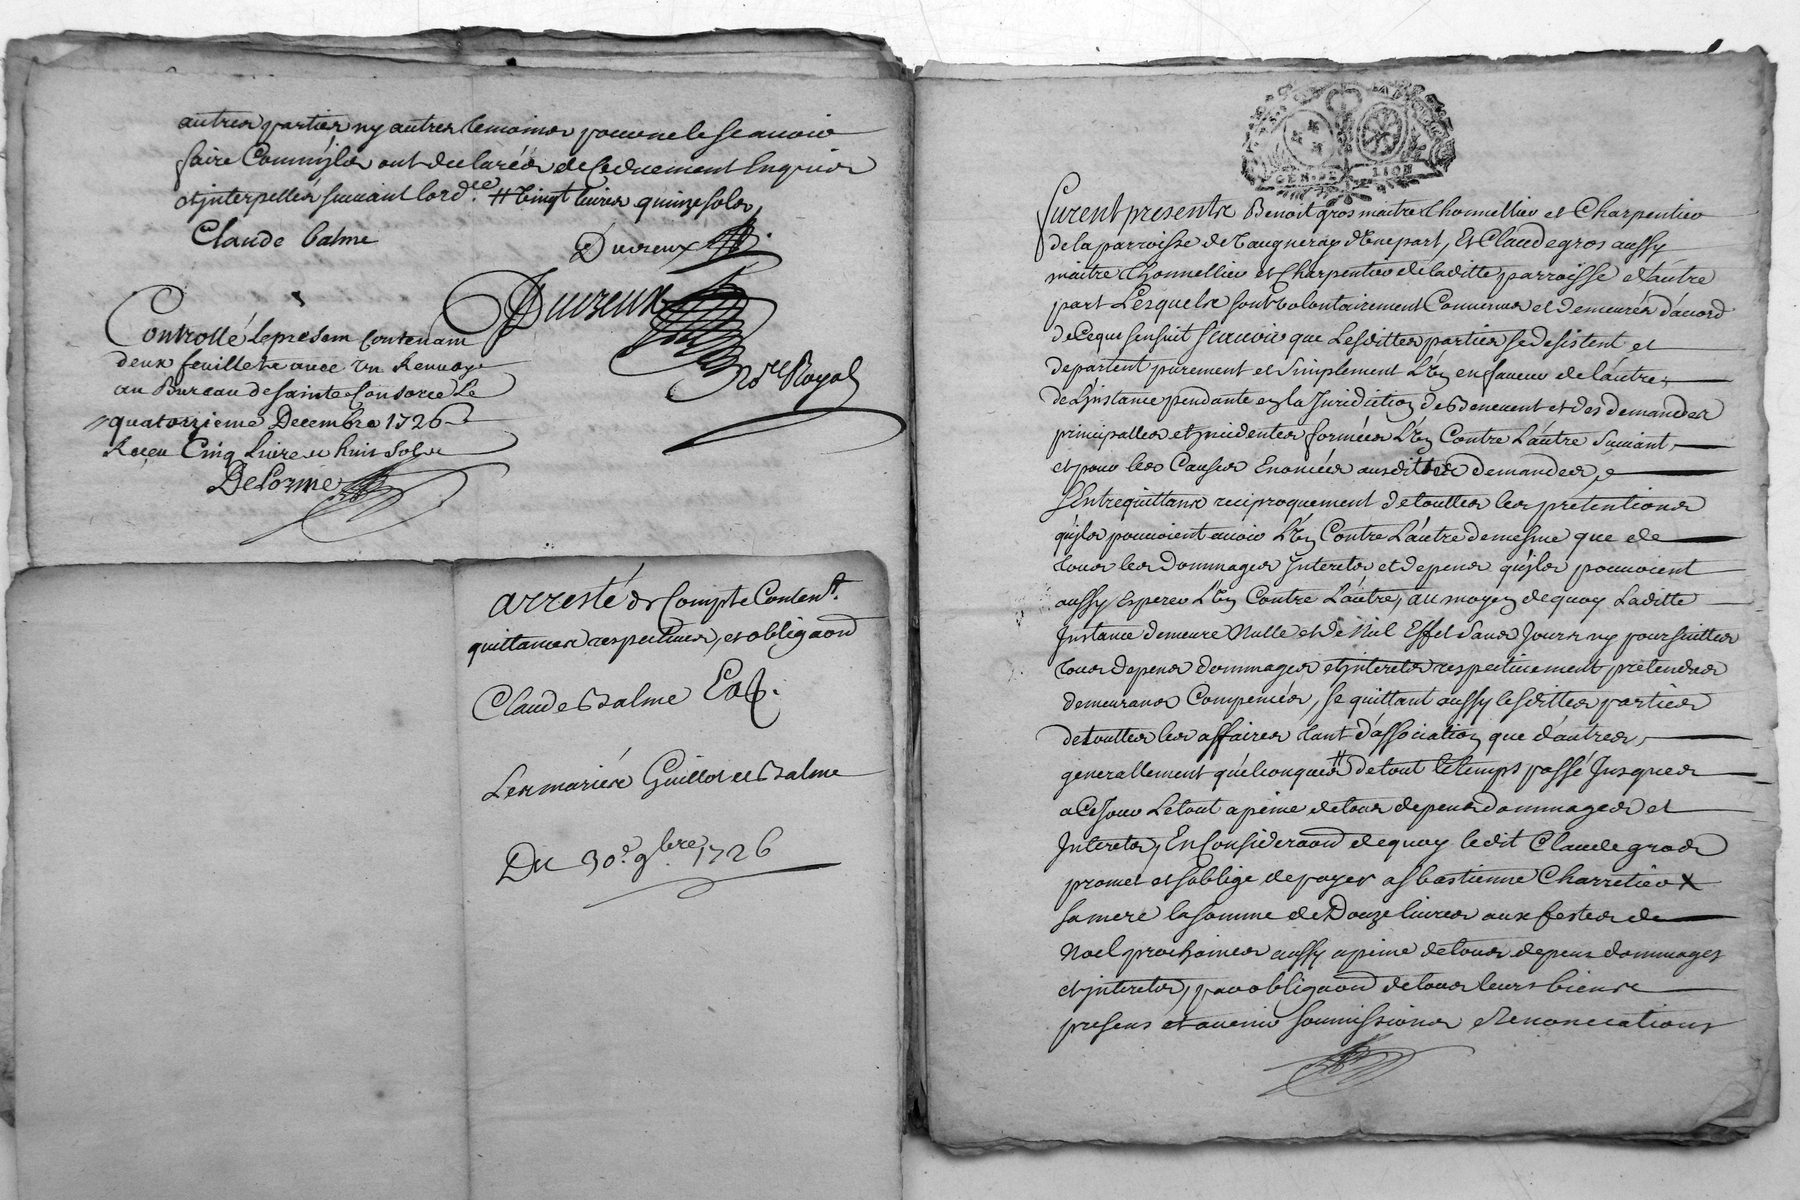 autres parties ny autres temoins pour ne le scavoir
faire Comm'ils ont declarés de Ce duement Enquis
et interpellés suivant lord.ce # vingt livres quinze sols
Claude balme
Duvreux
Duvreux
No.re Royal
Controllé le present Contenant
deux feuillets avec un Renvoy
au Bureau de Sainte Consorce Le
quatorzieme Decembre 1726
Receu Cinq Livres huit Sols
DeLorme
arresté de Compte Conten.t
quittances respectives, et obliga͠on
Claude Balme Et
Les mariés Guillot et Balme
Du 30.e 9bre 1726
GEN. DE LION
Furent presents Benoit gros maitre thonnellier et Charpentier
de la parroisse de Vaugneray d'Une part, Et Claude gros aussy
maitre thonnellier et Charpentier de laditte parroisse d'autre
part Lesquels sont volontairement Convenus et demeurés d'acord
de Ce que sensuit scavoir que Lesdittes parties se desistent et
departent purement et simplement L'Un en faveur de lautre,
de L'instance pendante en la Juridiction de Benevent et des demandes
principalles et incidentes formées L'Un Contre L'autre suivant
et pour les Causes Enoncées ausdittes demandes, et
s'Entrequittans reciproquement de touttes les pretentions
qu'ils pouvoient avoir L'Un Contre L'autre de mesme que de
tous les Dommages Interets et depens qu'ils pouvoient
aussy Esperer L'Un Contre L'autre, au moyen de quoy Laditte
Instance demeure Nulle et de Nul Effet Sans Jours ny poursuittes
tous depens dommages et interets respectivement pretendus
demeurans Compensés, se quittant aussy lesdittes parties
de touttes les affaires tant d'association que d'autres,
generallement quelconques # de tout le temps passé Jusques
a Ce Jour Le tout a peine de tous depens dommages et
Interets, En Considera͠on de quoy ledit Claude gros
promet et s'oblige de payer a Sbastienne Charretier X
sa mere la somme de Douze livres aux festes de
Noel prochaines aussy a peine de tous depens dommages
et interets, par obliga͠on de tous leurs biens
presens et avenir soumissions Renonciations